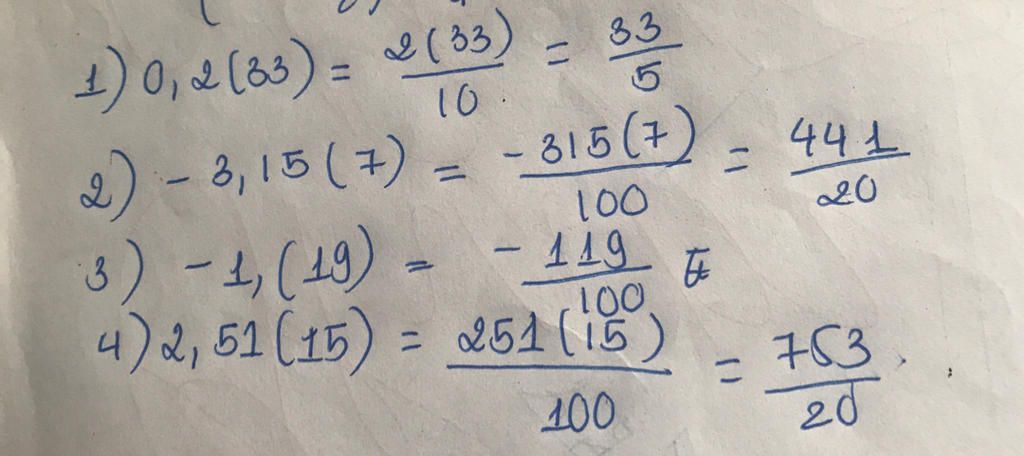 1) 0,2(33) = 2(33)/10 = 33/5
2) -3,15(7) = -315(7)/100 = 441/20
3) -1,(19) = -119/100
4) 2,51(15) = 251(15)/100 = 753/20